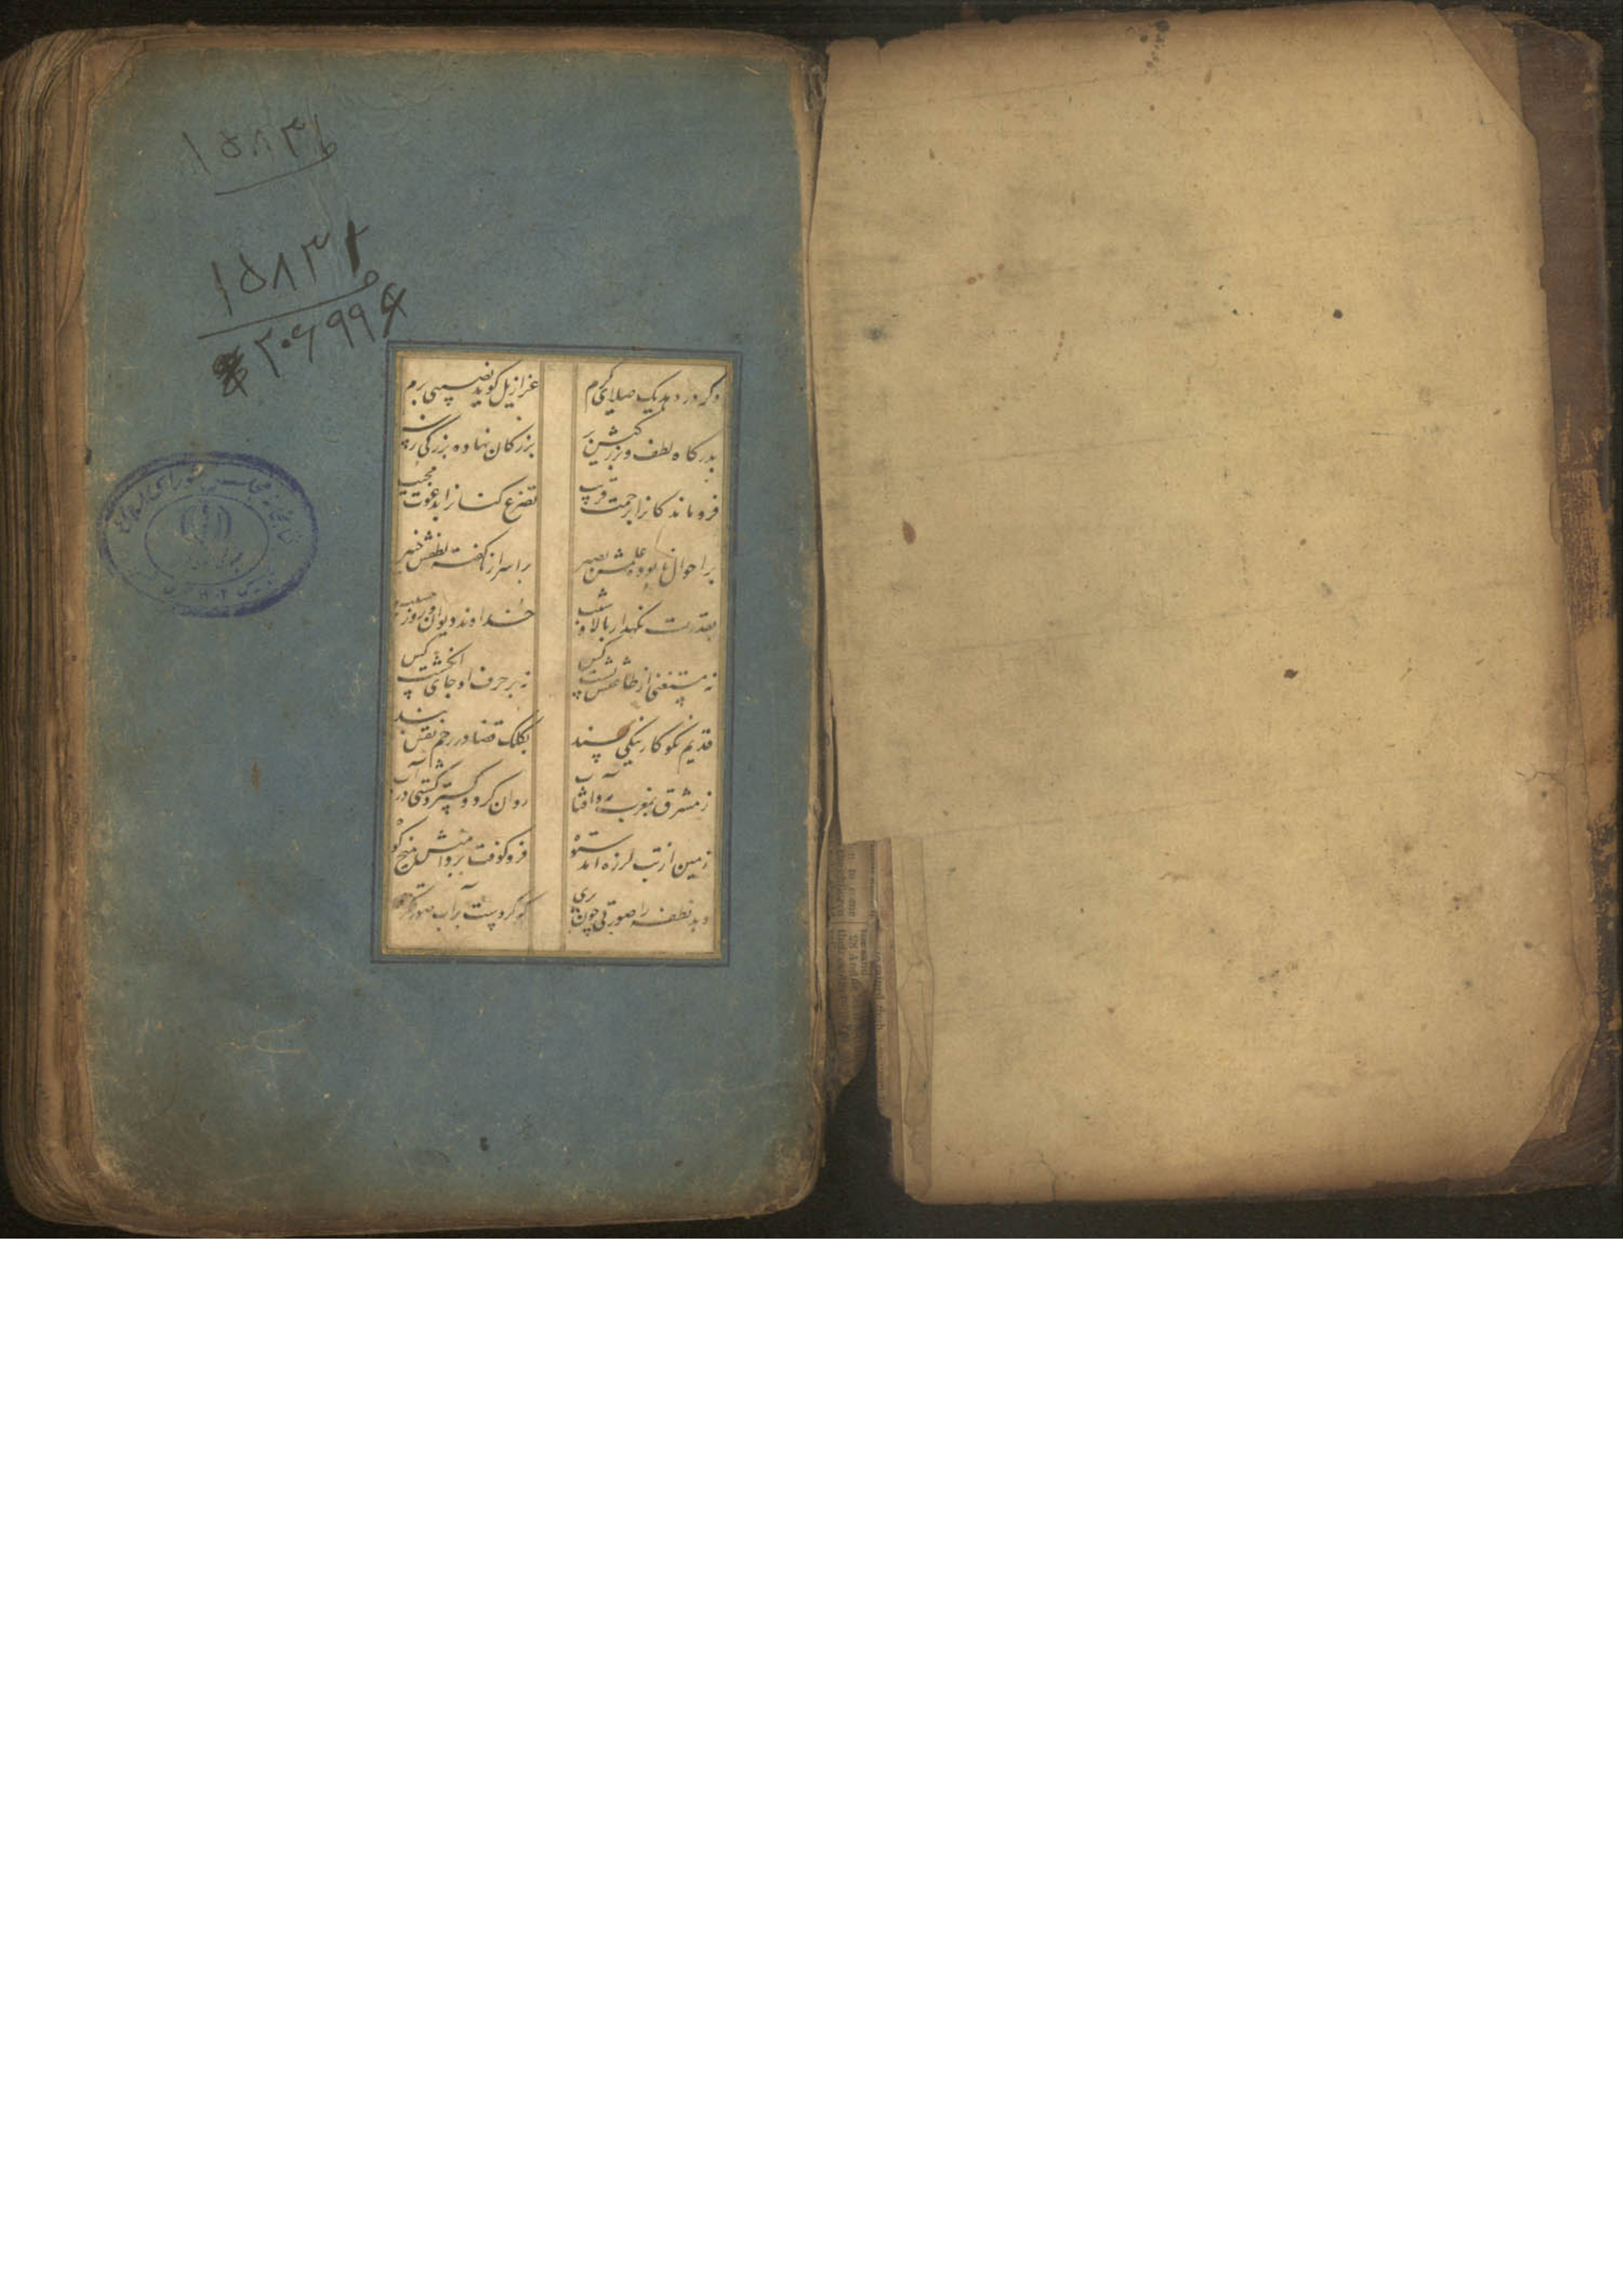 ۱۵۸۳
۱۵۸۳
۲۰۶۹۹
وکر در دهد یک صلای کرم
عزازیل کوید نصیبی برم
بدرکاه لطف و بزرکیش بر
بزرکان نهاده بزرکی ز سر
فروماندکانرا برحمت قریب
تضرع کنانرا بدعوت مجیب
بر احوال نابوده علمش بصیر
بر اسرار ناکفته لطفش خبیر
بقدرت نکهدار بالا و شیب
خداوند دیوان روز حسیب
نه مستغنی از طاعتش پشت کس
نه بر حرف او جای انکشت کس
قدیم نکوکار نیکی پسند
بکلک قضا در رحم نقش بند
ز مشرق بمغرب مه و آفتاب
روان کرد و کسترد کیتی بر آب
زمین از تب لرزه آمد ستوه
فرو کوفت بر دامنش میخ کوه
دهد نطفه را صورتی چون پری
که کردست بر آب صورتکری
کتابخانه مجلس شورای